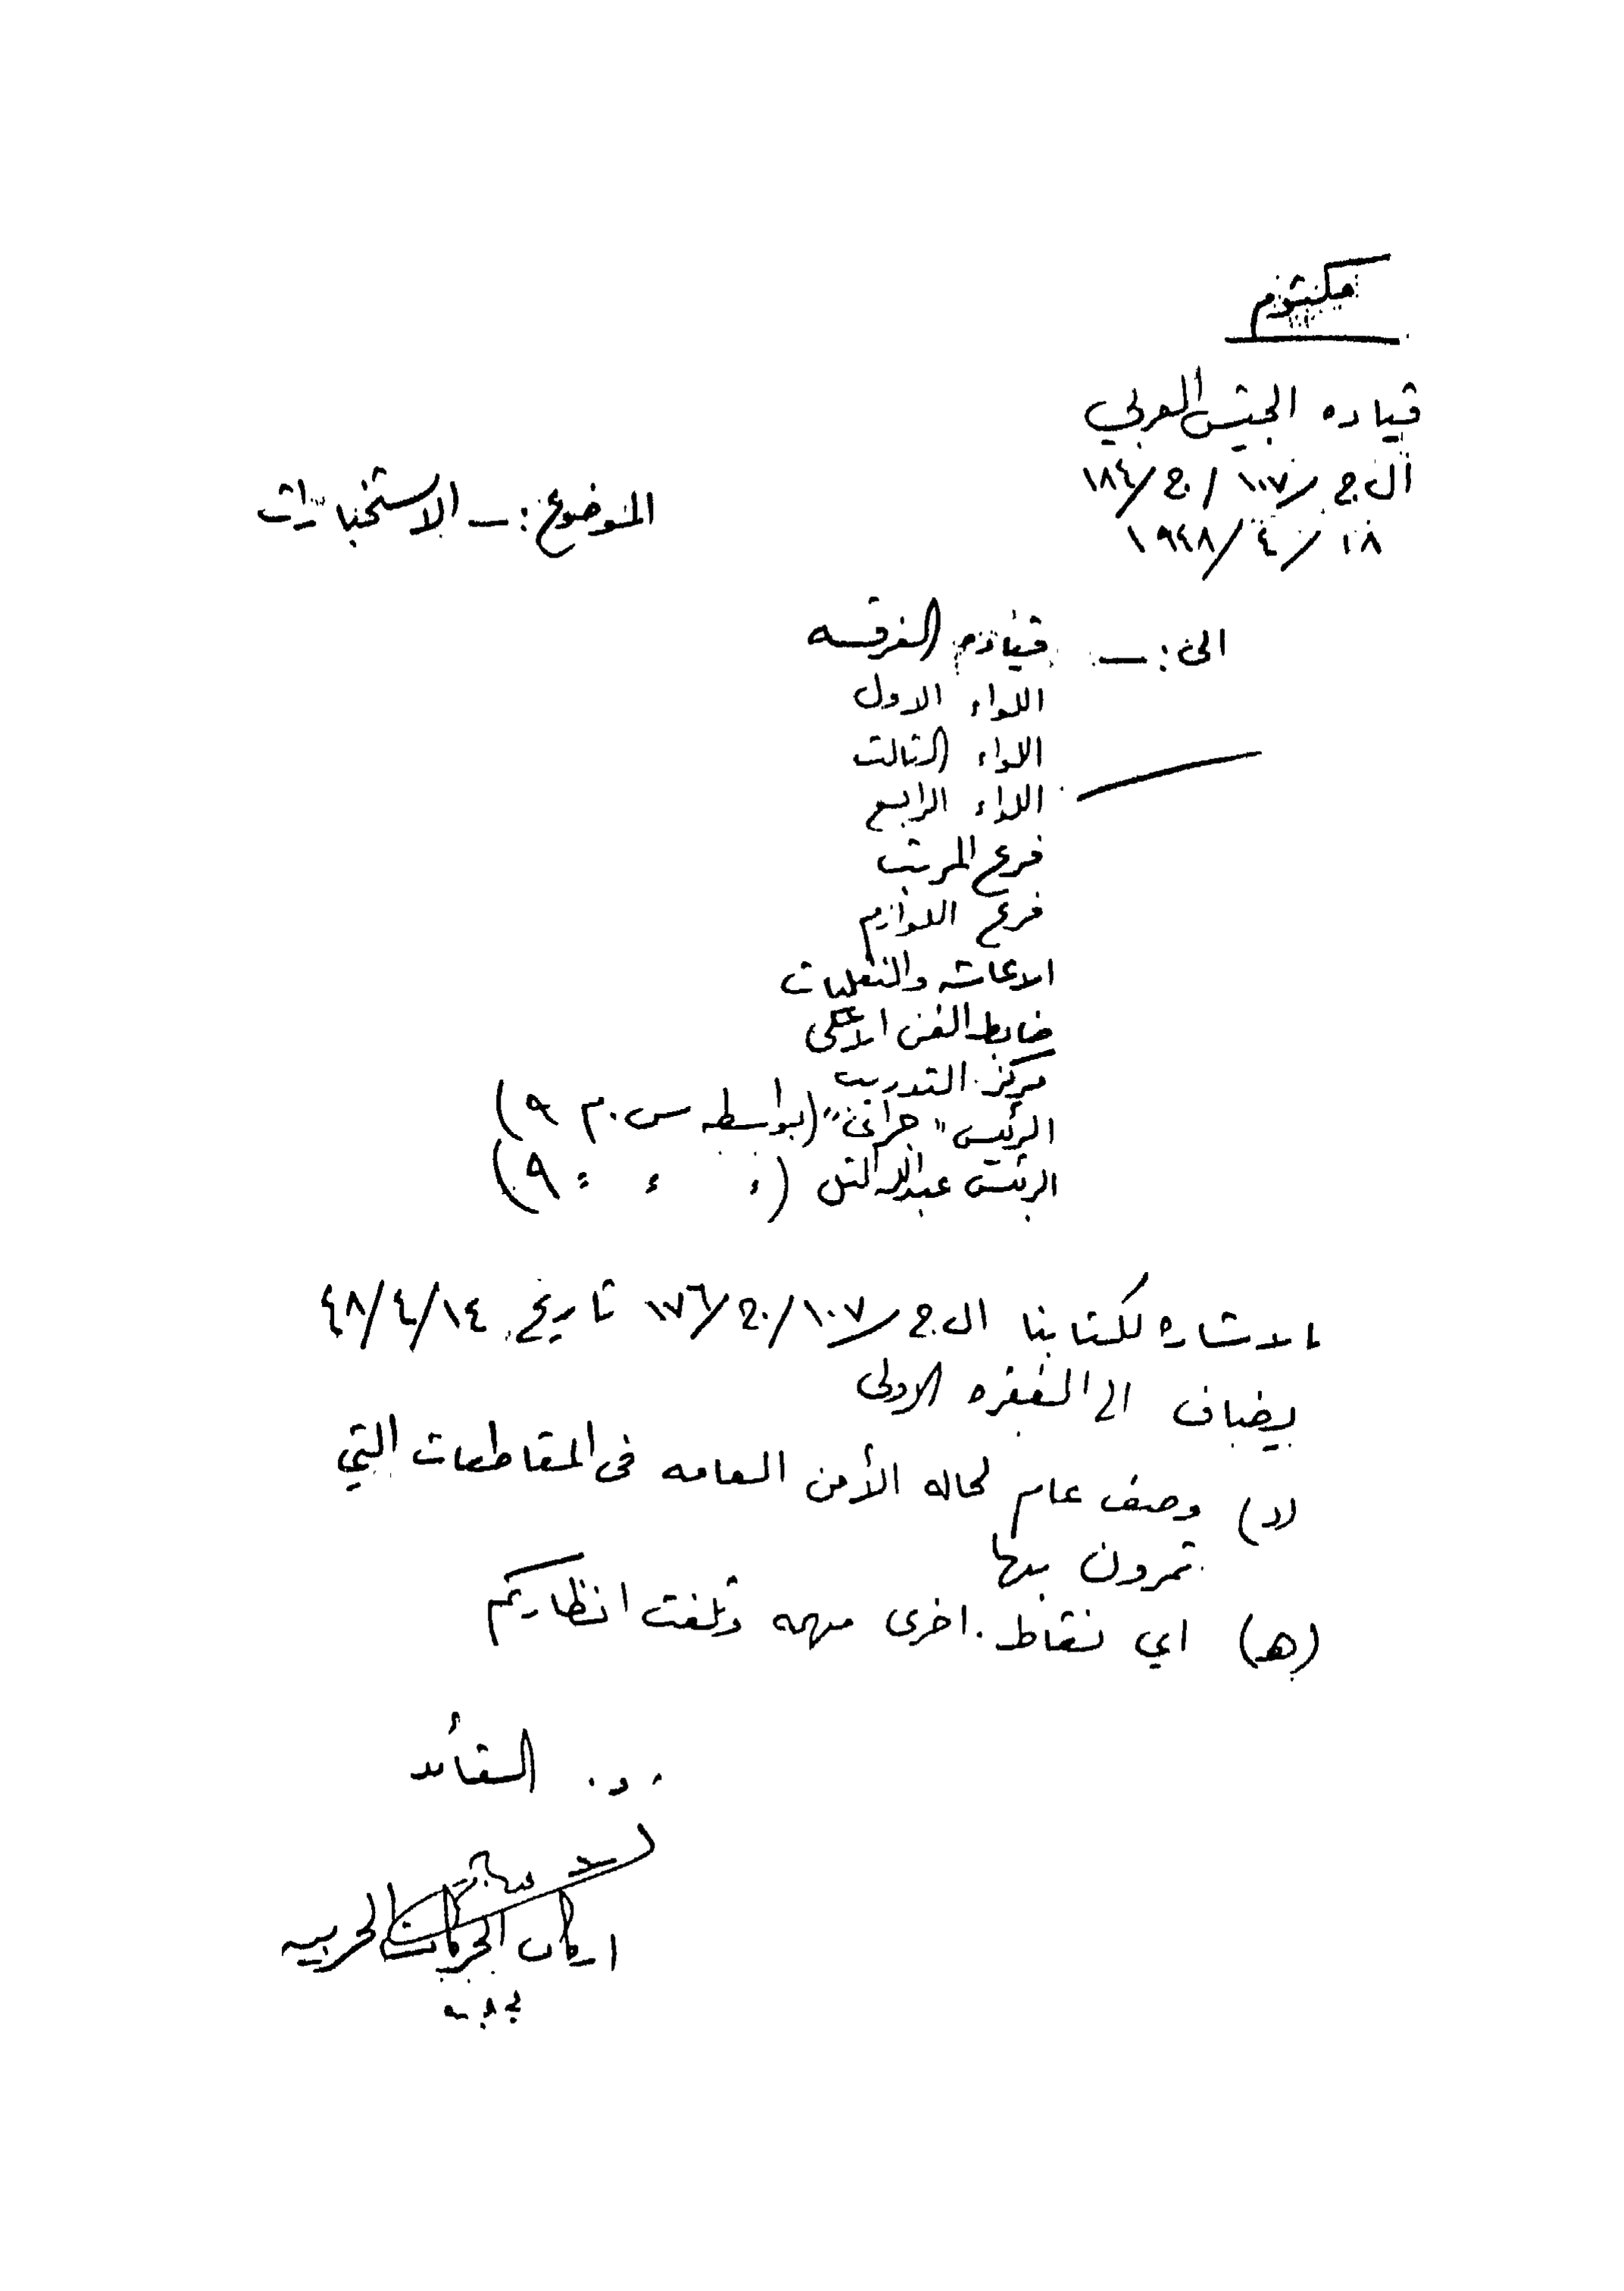 مكتوم
قياده الجيش العربي
ال ج / ١٠٧ / ج / ١٨٤
١٨ / ٤ / ١٩٤٨
الموضوع :ـ الاستخبارات
الى :ـ قياده الفرقه
اللواء الاول
اللواء الثالث
اللواء الرابع
فرع المرتب
فرع اللوازم
الاعاشه والنقليات
ضابط الفن الاعلى
مركز التدريب
الرئيس " جرانت " (بواسطه س . م ٩)
الرئيس عبدالله التل ( ٩)
بالاشاره لكتابنا ال ج / ١٠٧ / ج / ١٧٦ تاريخ ١٤/٤/٤٨
يضاف الى الفقره الاولى
(د) وصف عام لحاله الأمن العامه في المقاطعات التي
تمرون بها
(هـ) اي نقاط اخرى مهمه وتلفت انظاركم
القائد
اركان الحركات الحربيه